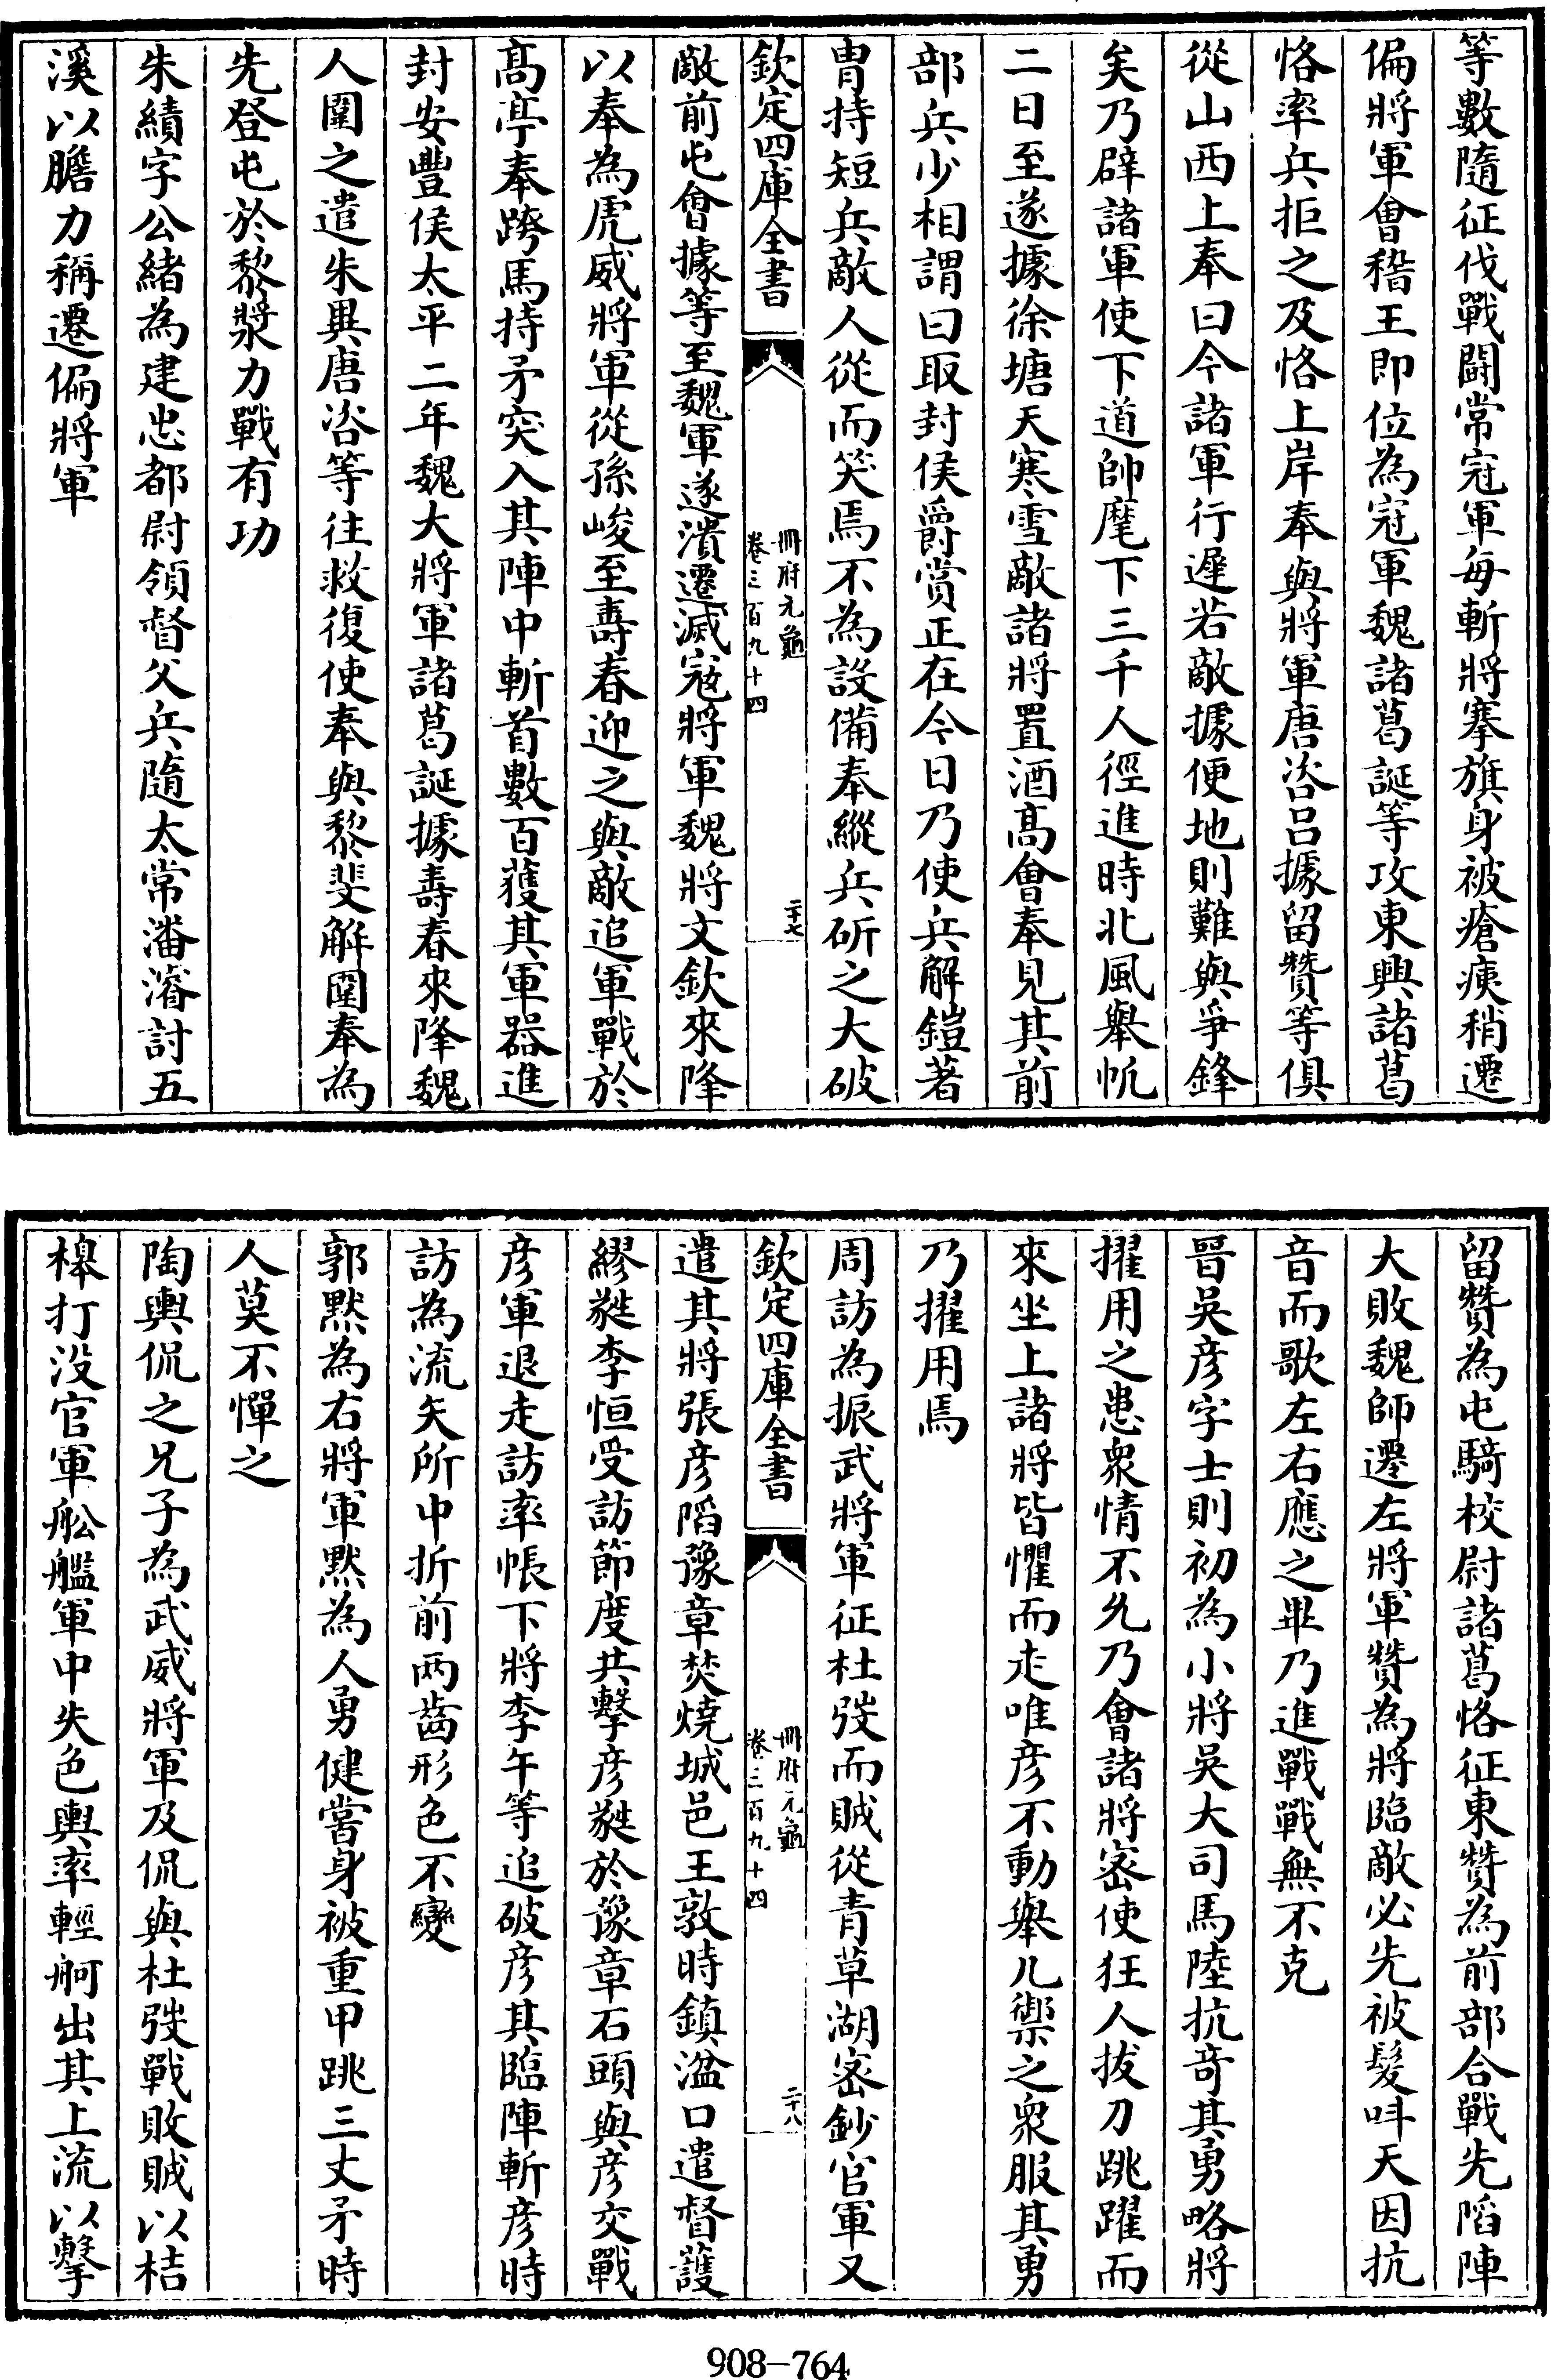 等數隨征伐戰鬬常冠軍每斬將搴旗身被瘡痍稍遷
偏將軍會稽王即位為冠軍魏諸葛誕等攻東興諸葛
恪率兵拒之及恪上岸奉與將軍唐咨吕據留贊等俱
從山西上奉曰今諸軍行遲若敵據便地則難與爭鋒
矣乃辟諸軍使下道帥麾下三千人徑進時北風舉帆
二日至遂據徐塘天寒雪敵諸將置酒髙會奉見其前
部兵少相謂曰取封侯爵賞正在今日乃使兵解鎧著
胄持短兵敵人從而笑焉不為設備奉縱兵斫之大破
欽定四庫全書
冊府元龜
卷三百九十四
二十七
敵前屯會據等至魏軍遂潰遷滅宼將軍魏將文欽來降
以奉為虎威將軍從孫峻至壽春迎之與敵追軍戰於
髙亭奉跨馬持矛突入其陣中斬首數百獲其軍器進
封安豐侯太平二年魏大將軍諸葛誕據壽春來降魏
人圍之遣朱異唐咨等往救復使奉與黎斐解圍奉為
先登屯於黎漿力戰有功
朱績字公緒為建忠都尉領督父兵隨太常潘濬討五
溪以膽力稱遷偏將軍
留贊為屯騎校尉諸葛恪征東贊為前部合戰先䧟陣
大敗魏師遷左將軍贊為將臨敵必先被髮呌天因抗
音而歌左右應之畢乃進戰戰無不克
晉吳彦字士則初為小將吳大司馬陸抗竒其勇略將
擢用之患衆情不允乃會諸將宻使狂人拔刀跳躍而
來坐上諸將皆懼而走唯彦不動舉几禦之衆服其勇
乃擢用焉
周訪為振武將軍征杜弢而賊從青草湖宻鈔官軍又
欽定四庫全書
冊府元龜
卷三百九十四
二十八
遣其將張彦䧟豫章焚燒城邑王敦時鎮湓口遣督護
繆蕤李恒受訪節度共擊彦蕤於豫章石頭與彦交戰
彦軍退走訪率帳下將李午等追破彦其臨陣斬彦時
訪為流矢所中折前兩齒形色不變
郭黙為右將軍黙為人勇健嘗身被重甲跳三丈矛時
人莫不憚之
陶輿侃之兄子為武威將軍及侃與杜弢戰敗賊以桔
槔打没官軍舩艦軍中失色輿率輕舸出其上流以擊
908-764